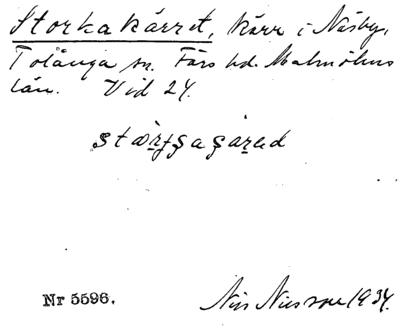 Storkakärret, kärr i Näsby,
Tolånga sn. Färs hd. Malmöhus
län. Vid 24.
Nr 5596.
Nils Nilsson 1934.